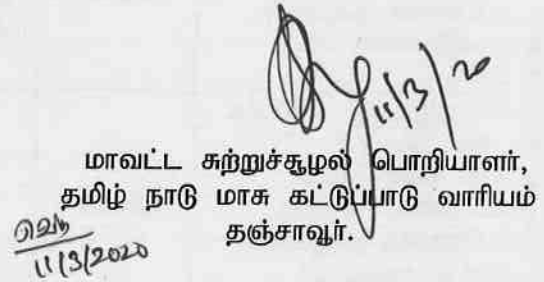 11/3/20
மாவட்ட சுற்றுச்சூழல் பொறியாளர்,
தமிழ் நாடு மாசு கட்டுப்பாடு வாரியம்
தஞ்சாவூர்.
11/3/2020